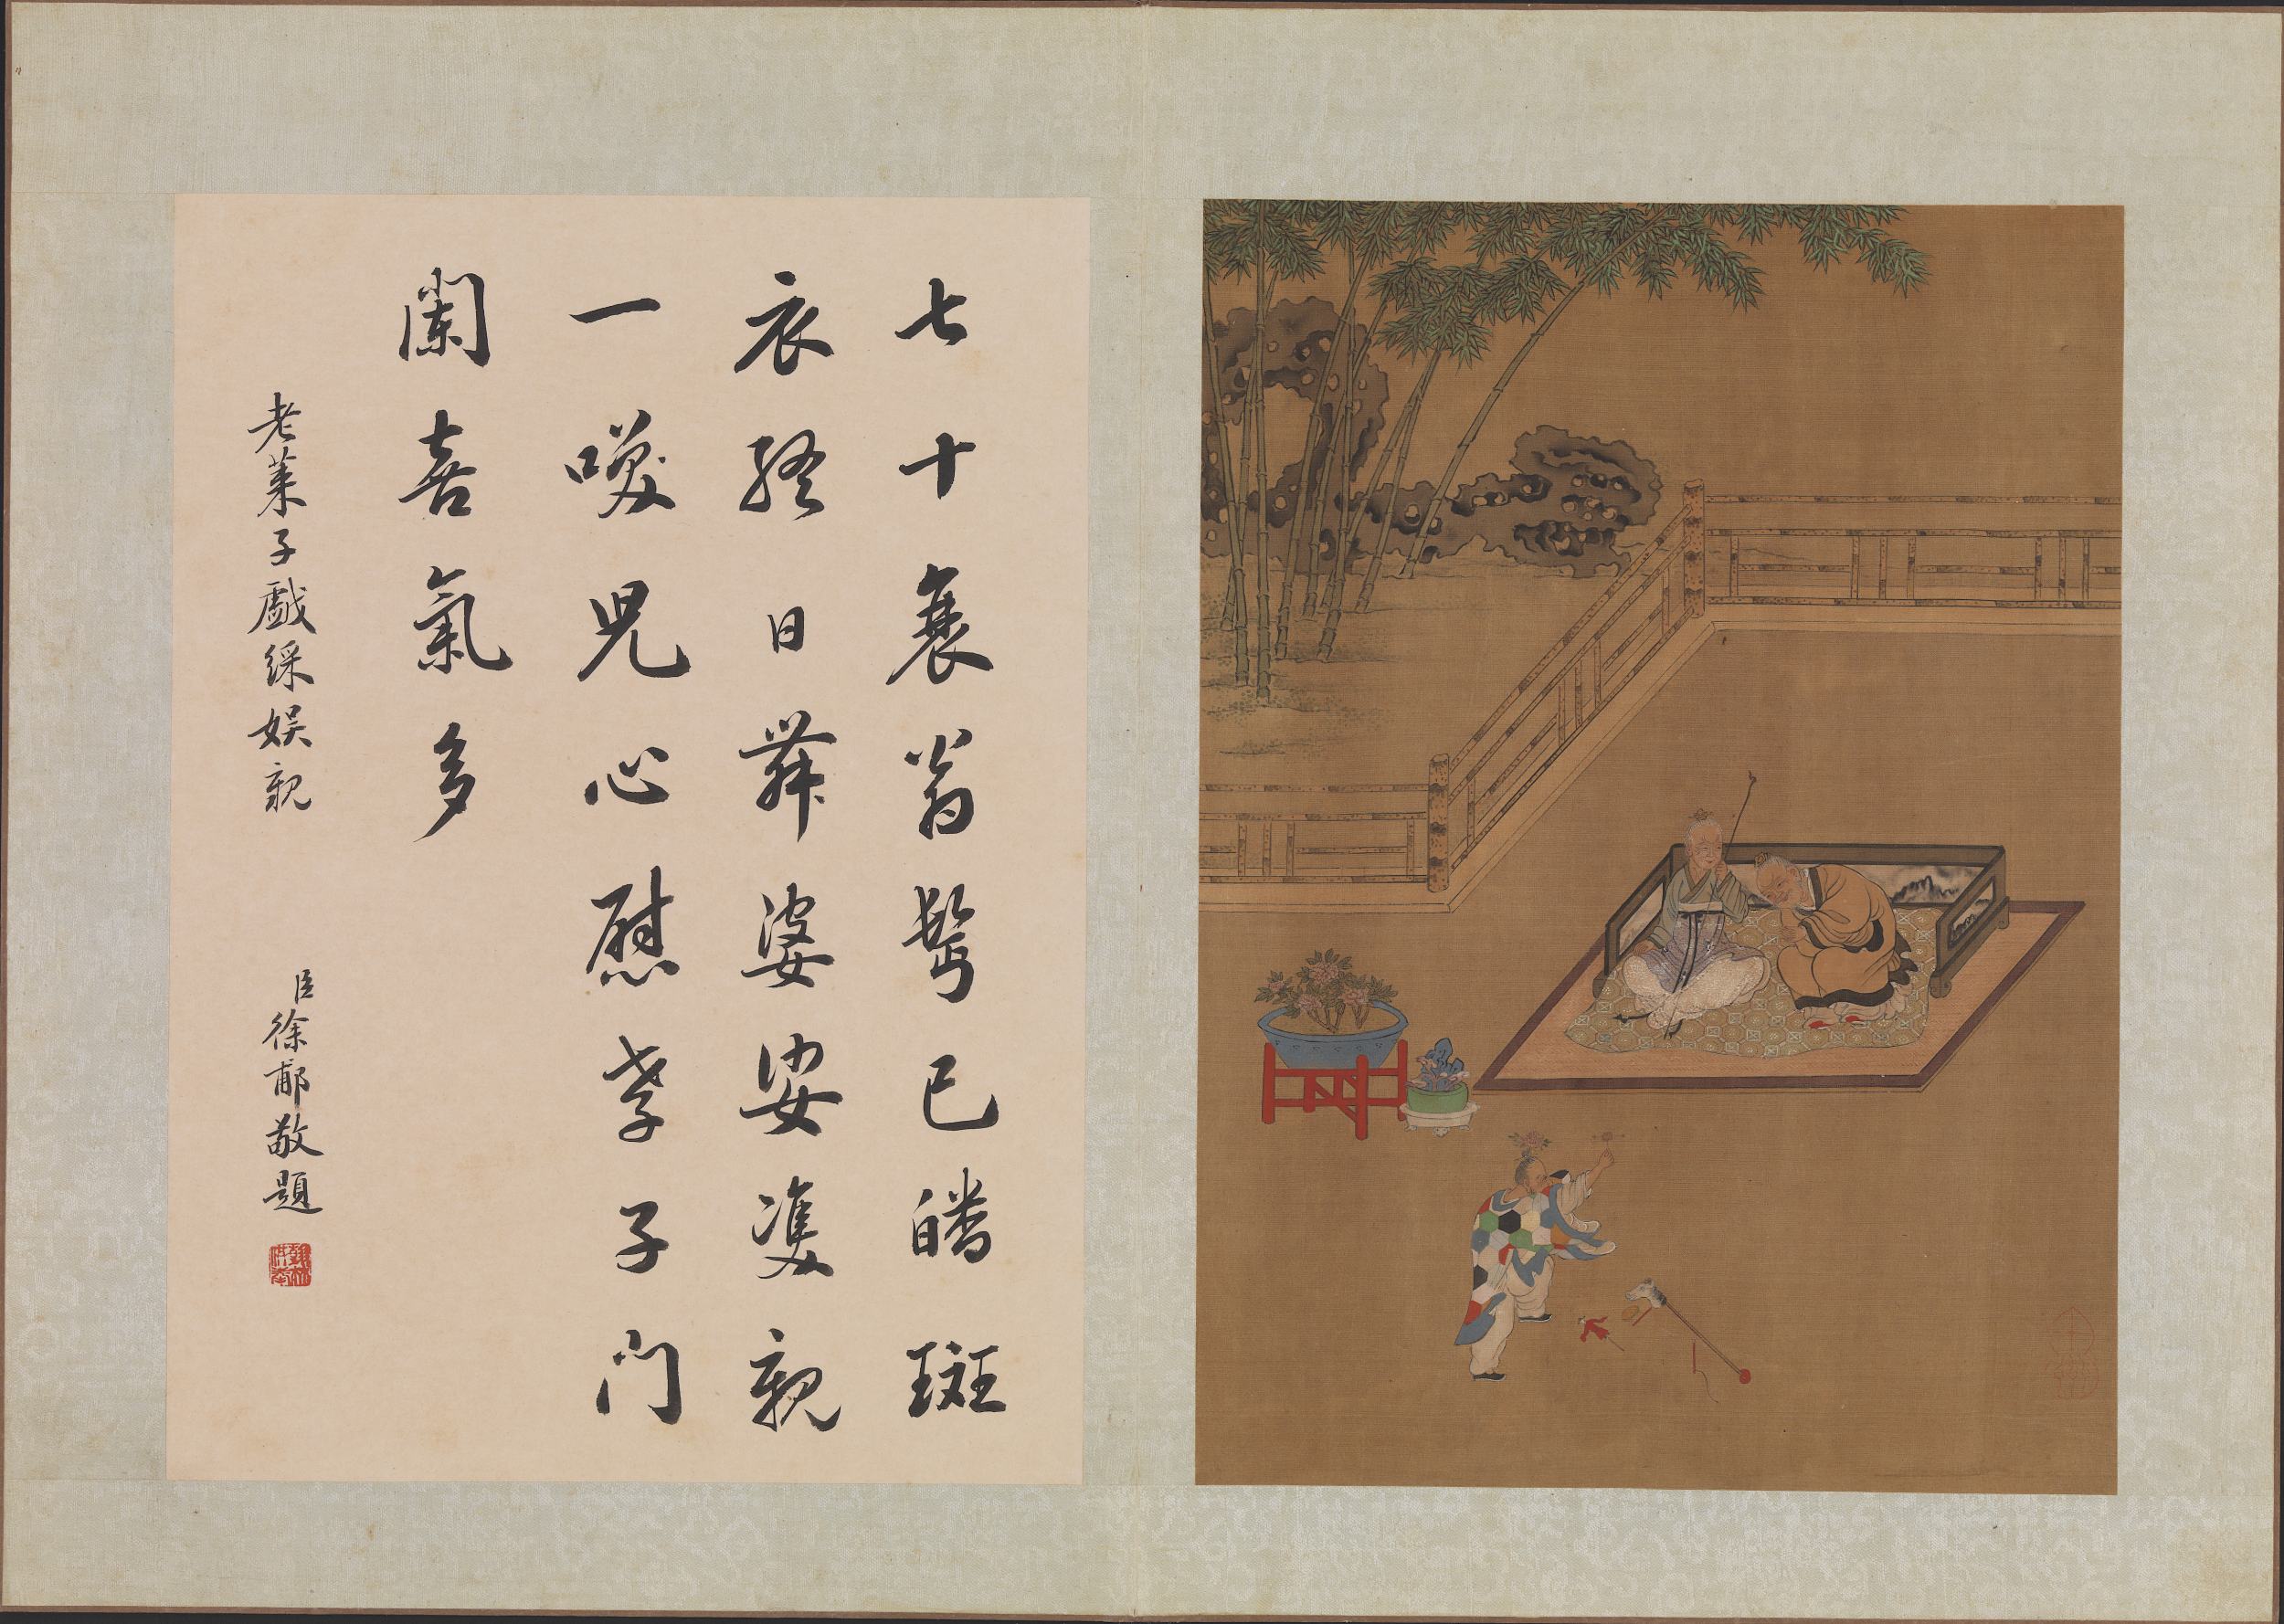 七十衰翁鬢已皤斑
衣終日舞婆娑雙親
一兒心慰孝子门
闌喜氣多
老萊子戲綵娛親
臣徐郙敬題